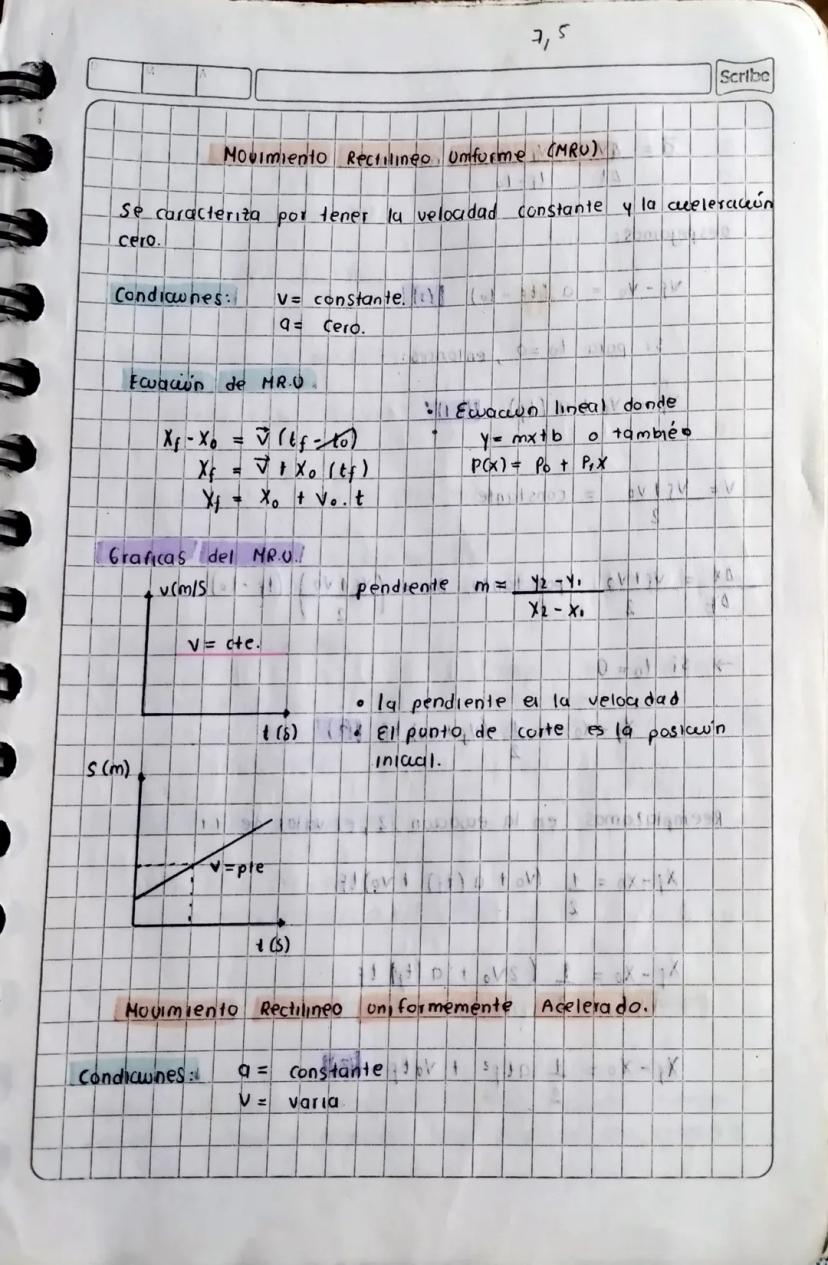 7,5
Scribe
Movimiento Rectilineo Uniforme (MRU)
Se caracteriza por tener la velocidad constante y la aceleración
cero.
Condiciones: v = constante.
a = cero.
Ecuación de MR.U.
Ecuación lineal donde
y = mx + b o también
P(x) = P₀ + P₁X
Xf - X₀ = v⃗ (tf - t₀)
Xf = v⃗ + X₀ (tf)
Xf = X₀ + V₀.t
Graficas del MR.U.
v(m/s
pendiente m = y₂ - y₁
x₂ - x₁
V = cte.
t(s)
• la pendiente es la velocidad
• El punto de corte es la posición
inicial.
S(m)
V = pte
t(s)
Movimiento Rectilineo uniformemente Acelerado.
Condiciones: a = constante
V = varia